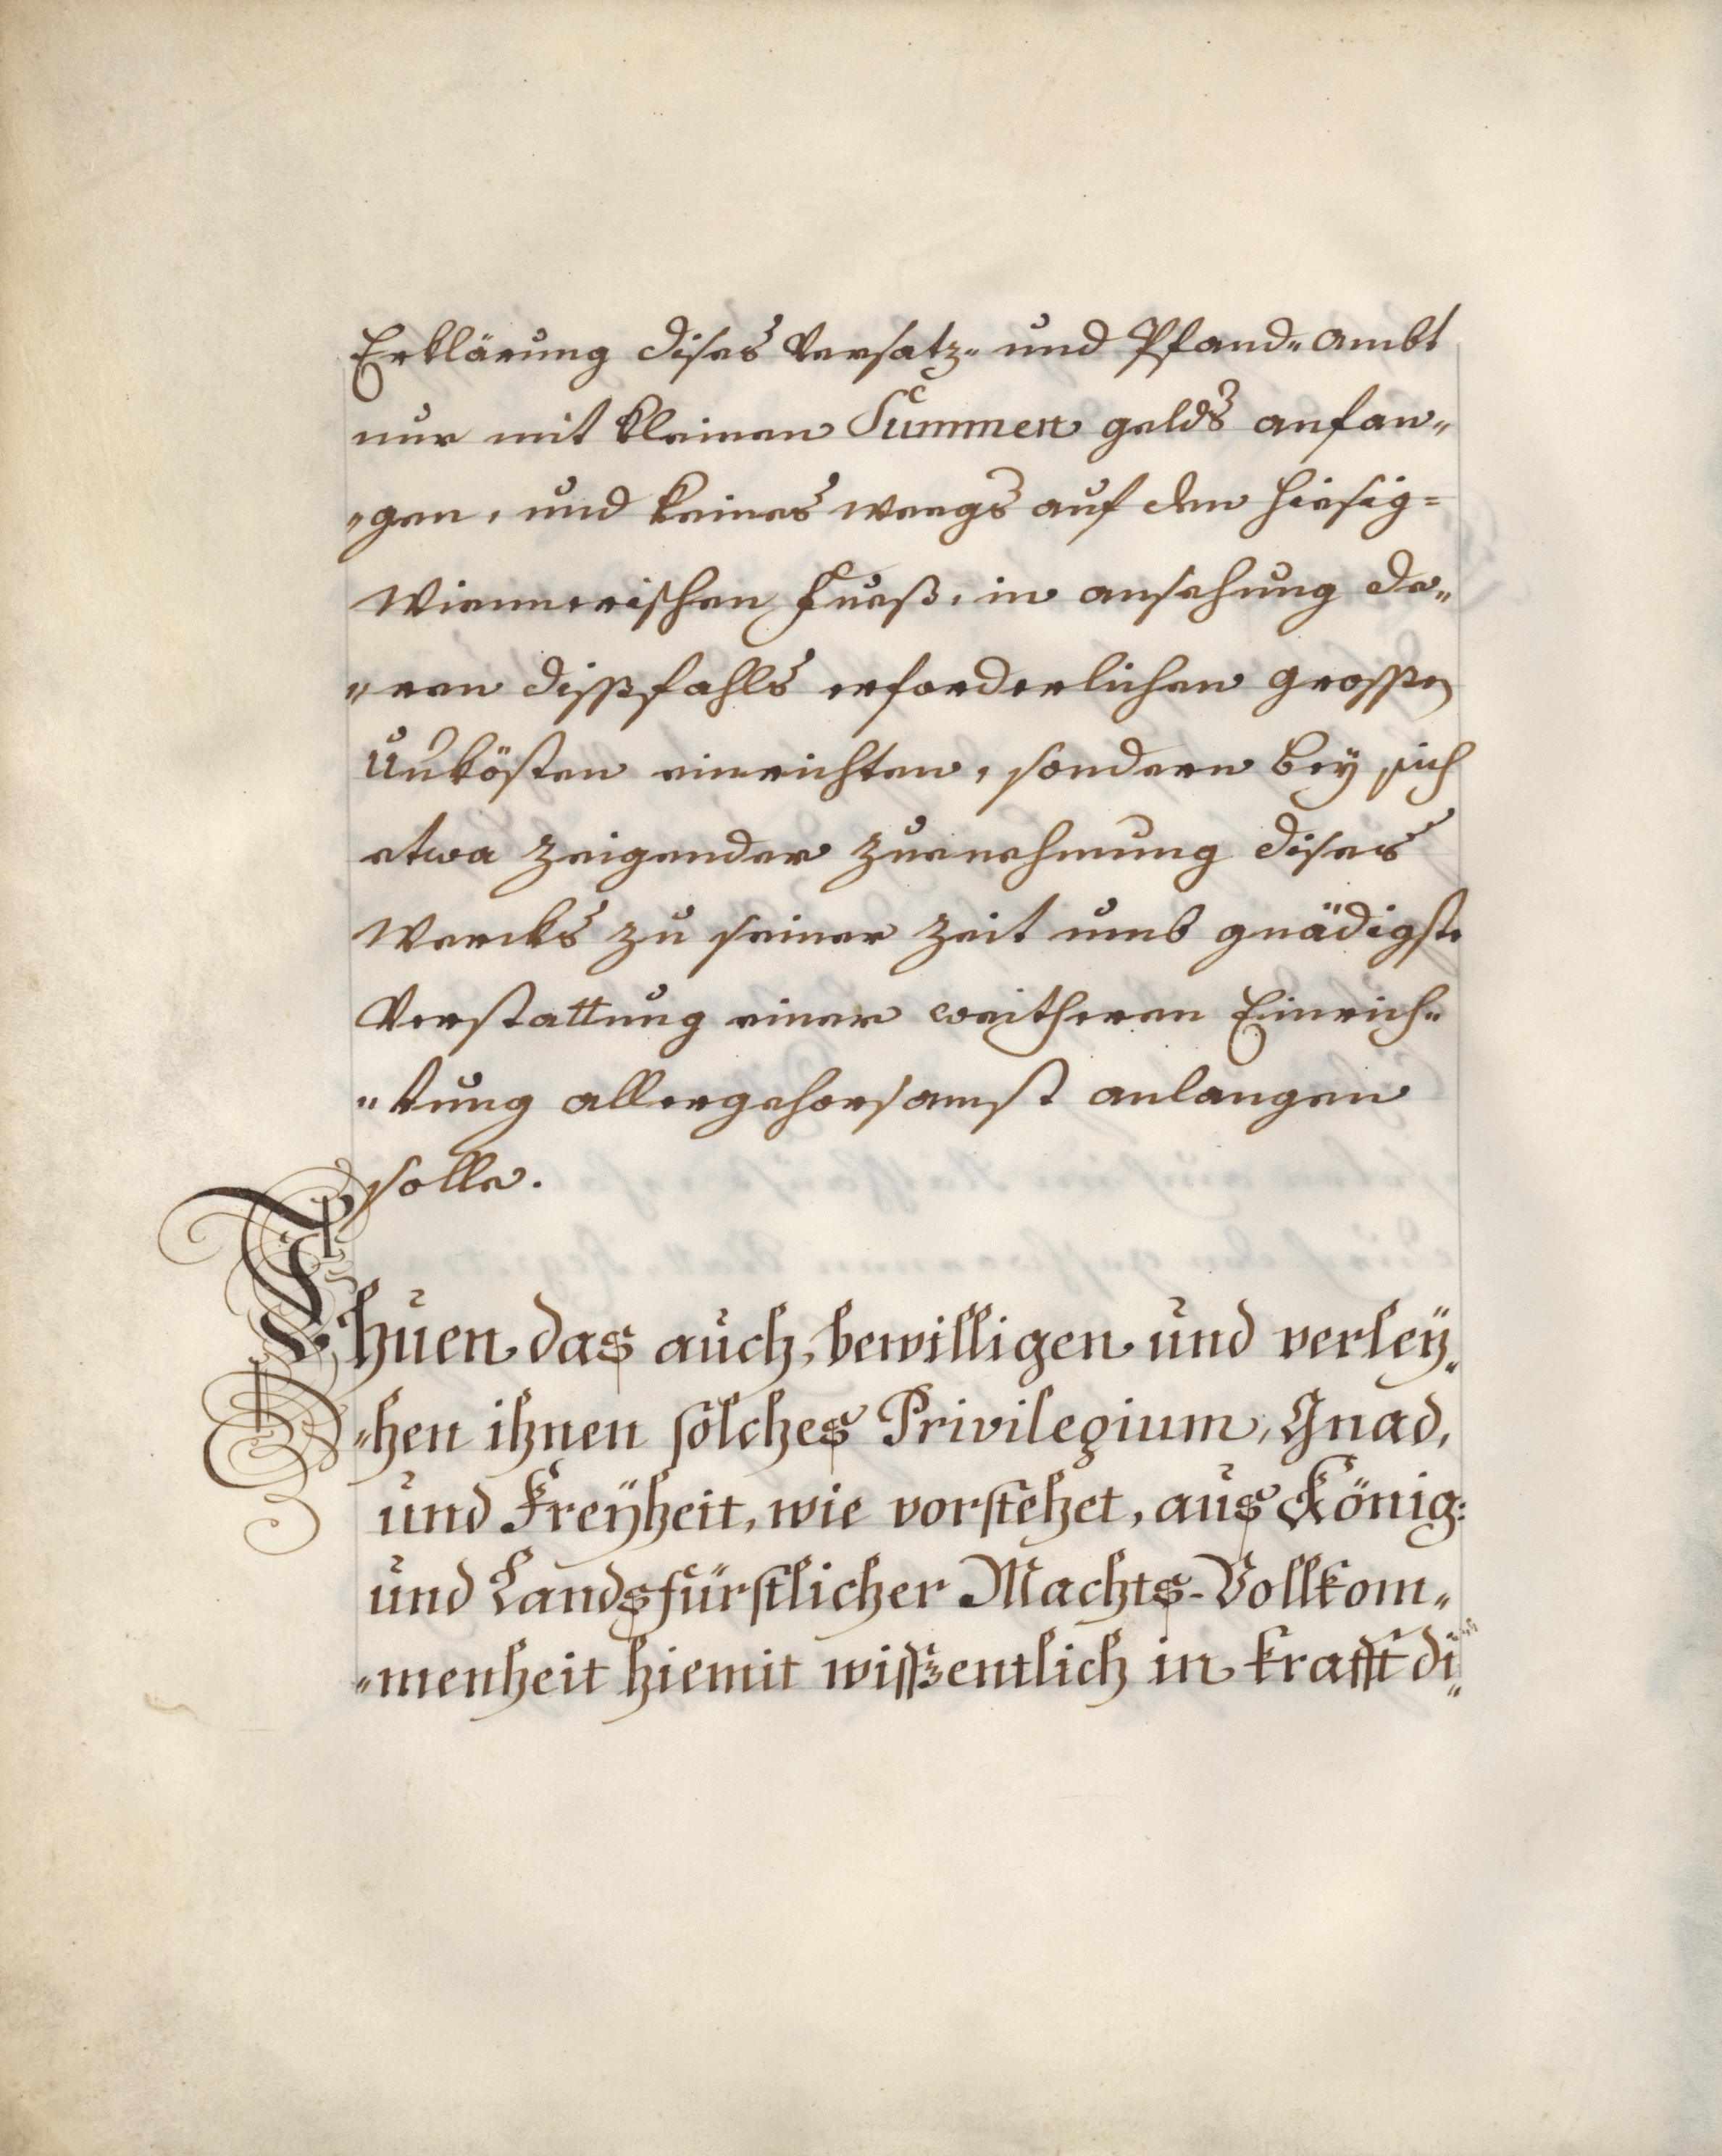 Erklärung dises Versatz- und Pfand-Ambt
nur mit kleinen Summen gelds anfan-
-gen, und keines weegs auf den hiesig-
Wiennerischen Fueß, in ansehung de-
-ren dißfahls erforderlichen grossen
Unkösten einrichten, sondern bey sich
etwa zeigender Zuenehmung dises
Wercks zu seiner Zeit umb gnädigste
Verstattung einer weitheren Einrich-
-tung allergehorsamst anlangen
solle.
Thuen das auch, bewilligen und verley-
-hen ihnen solches Privilegium, Gnad,
und Freÿheit, wie vorstehet, aus König:
und Landsfürstlicher Machts-Vollkom-
-menheit hiemit wissentlich in krafft di-